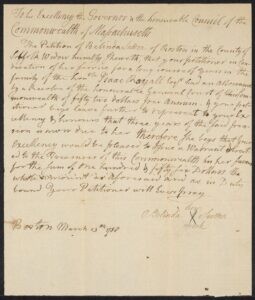 To his Excellency the Governor & the honorable Council of the
Commonwealth of Massachusetts
The Petition of Belinda Sutton of Boston in the County of
Suffolk Widow humbly sheweth that your petitioner in con-
sideration of her service for a long course of years in the
family of the Hon. Isaac Royall Esqr then an allowance
by a Resolve of the honorable General Court of this Com-
monwealth of fifty two dollars per annum & your peti-
tioner begs leave further to represent to your Ex-
cellency & honours that three years of the said pension
is now due to her Therefore She prays that your
Excellency would be pleased to issue a Warrant direct
ed to the Treasurer of this Commonwealth in her favour
for the Sum of one hundred & fifty six dollars the
whole as aforesaid and as in Duty
bound your Petitioner will Ever Pray
her
Belinda X Sutton
mark
Boston March 1788